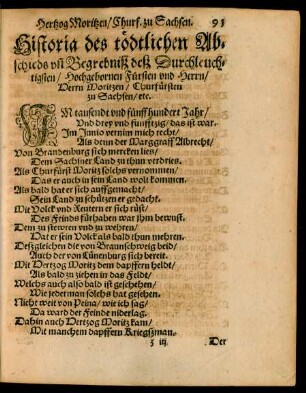 Hertzog Moritzen/ Churf. zu Sachsen. 91
Historia des tödtlichen Ab-
schieds vñ Begrebniß deß Durchleuch-
tigsten/ Hochgebornen Fürsten vnd Herrn/
Herrn Moritzen/ Churfürsten
zu Sachsen/ etc.
IM tausendt vnd fünffhundert Jahr/
Vnd drey vnd funfftzig/ das ist war.
Im Junio vernim mich recht/
Als denn der Marggraff Albrecht/
Von Brandenburg sich mercken lies/
Dem Sachsner Land zu thun verdries.
Als Churfürst Moritz solchs vernommen/
Das er auch in sein Land wolt kommen.
Als bald hat er sich auffgemacht/
Sein Land zu schützen er gedacht.
Mit Volck vnd Reutern er sich rüst/
Des Feinds fürhaben war jhm bewust.
Dem zu stewren vnd zu wehren/
Dat er sein Volck als bald thun mehren.
Deßgleichen die von Braunschweig beid/
Auch der von Lünenburg sich bereit.
Mit Hertzog Moritz dem dapffern heldt/
Als bald zu ziehen in das Feldt.
Welchs auch also bald ist geschehen/
Wie jederman solchs hat gesehen.
Nicht weit von Peina/ wie ich sag/
Da ward der Feinde niderlag.
Dahin auch Hertzog Moritz kam/
Mit manchem dapffern Kriegßman.
z iij. Der